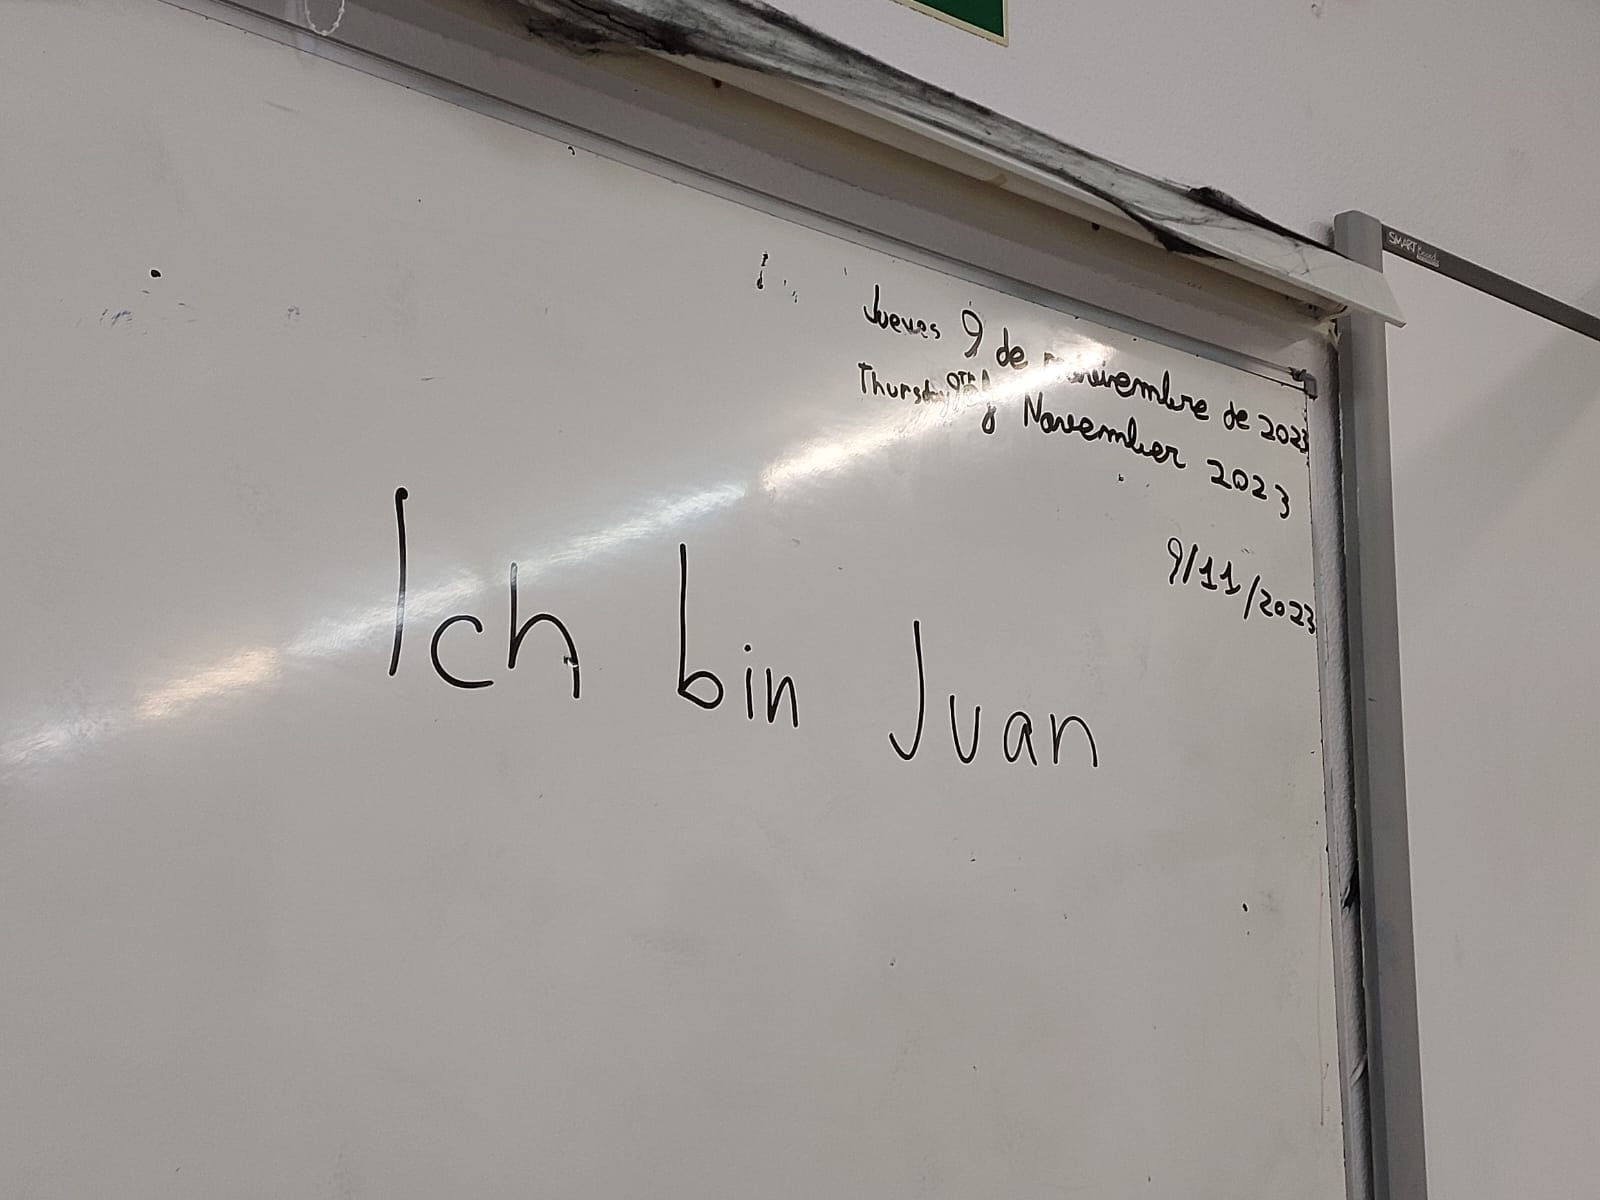 Jueves 9 de noviembre de 2023
Thursday 9TH of November 2023
9/11/2023
Ich bin Juan
SMART Board